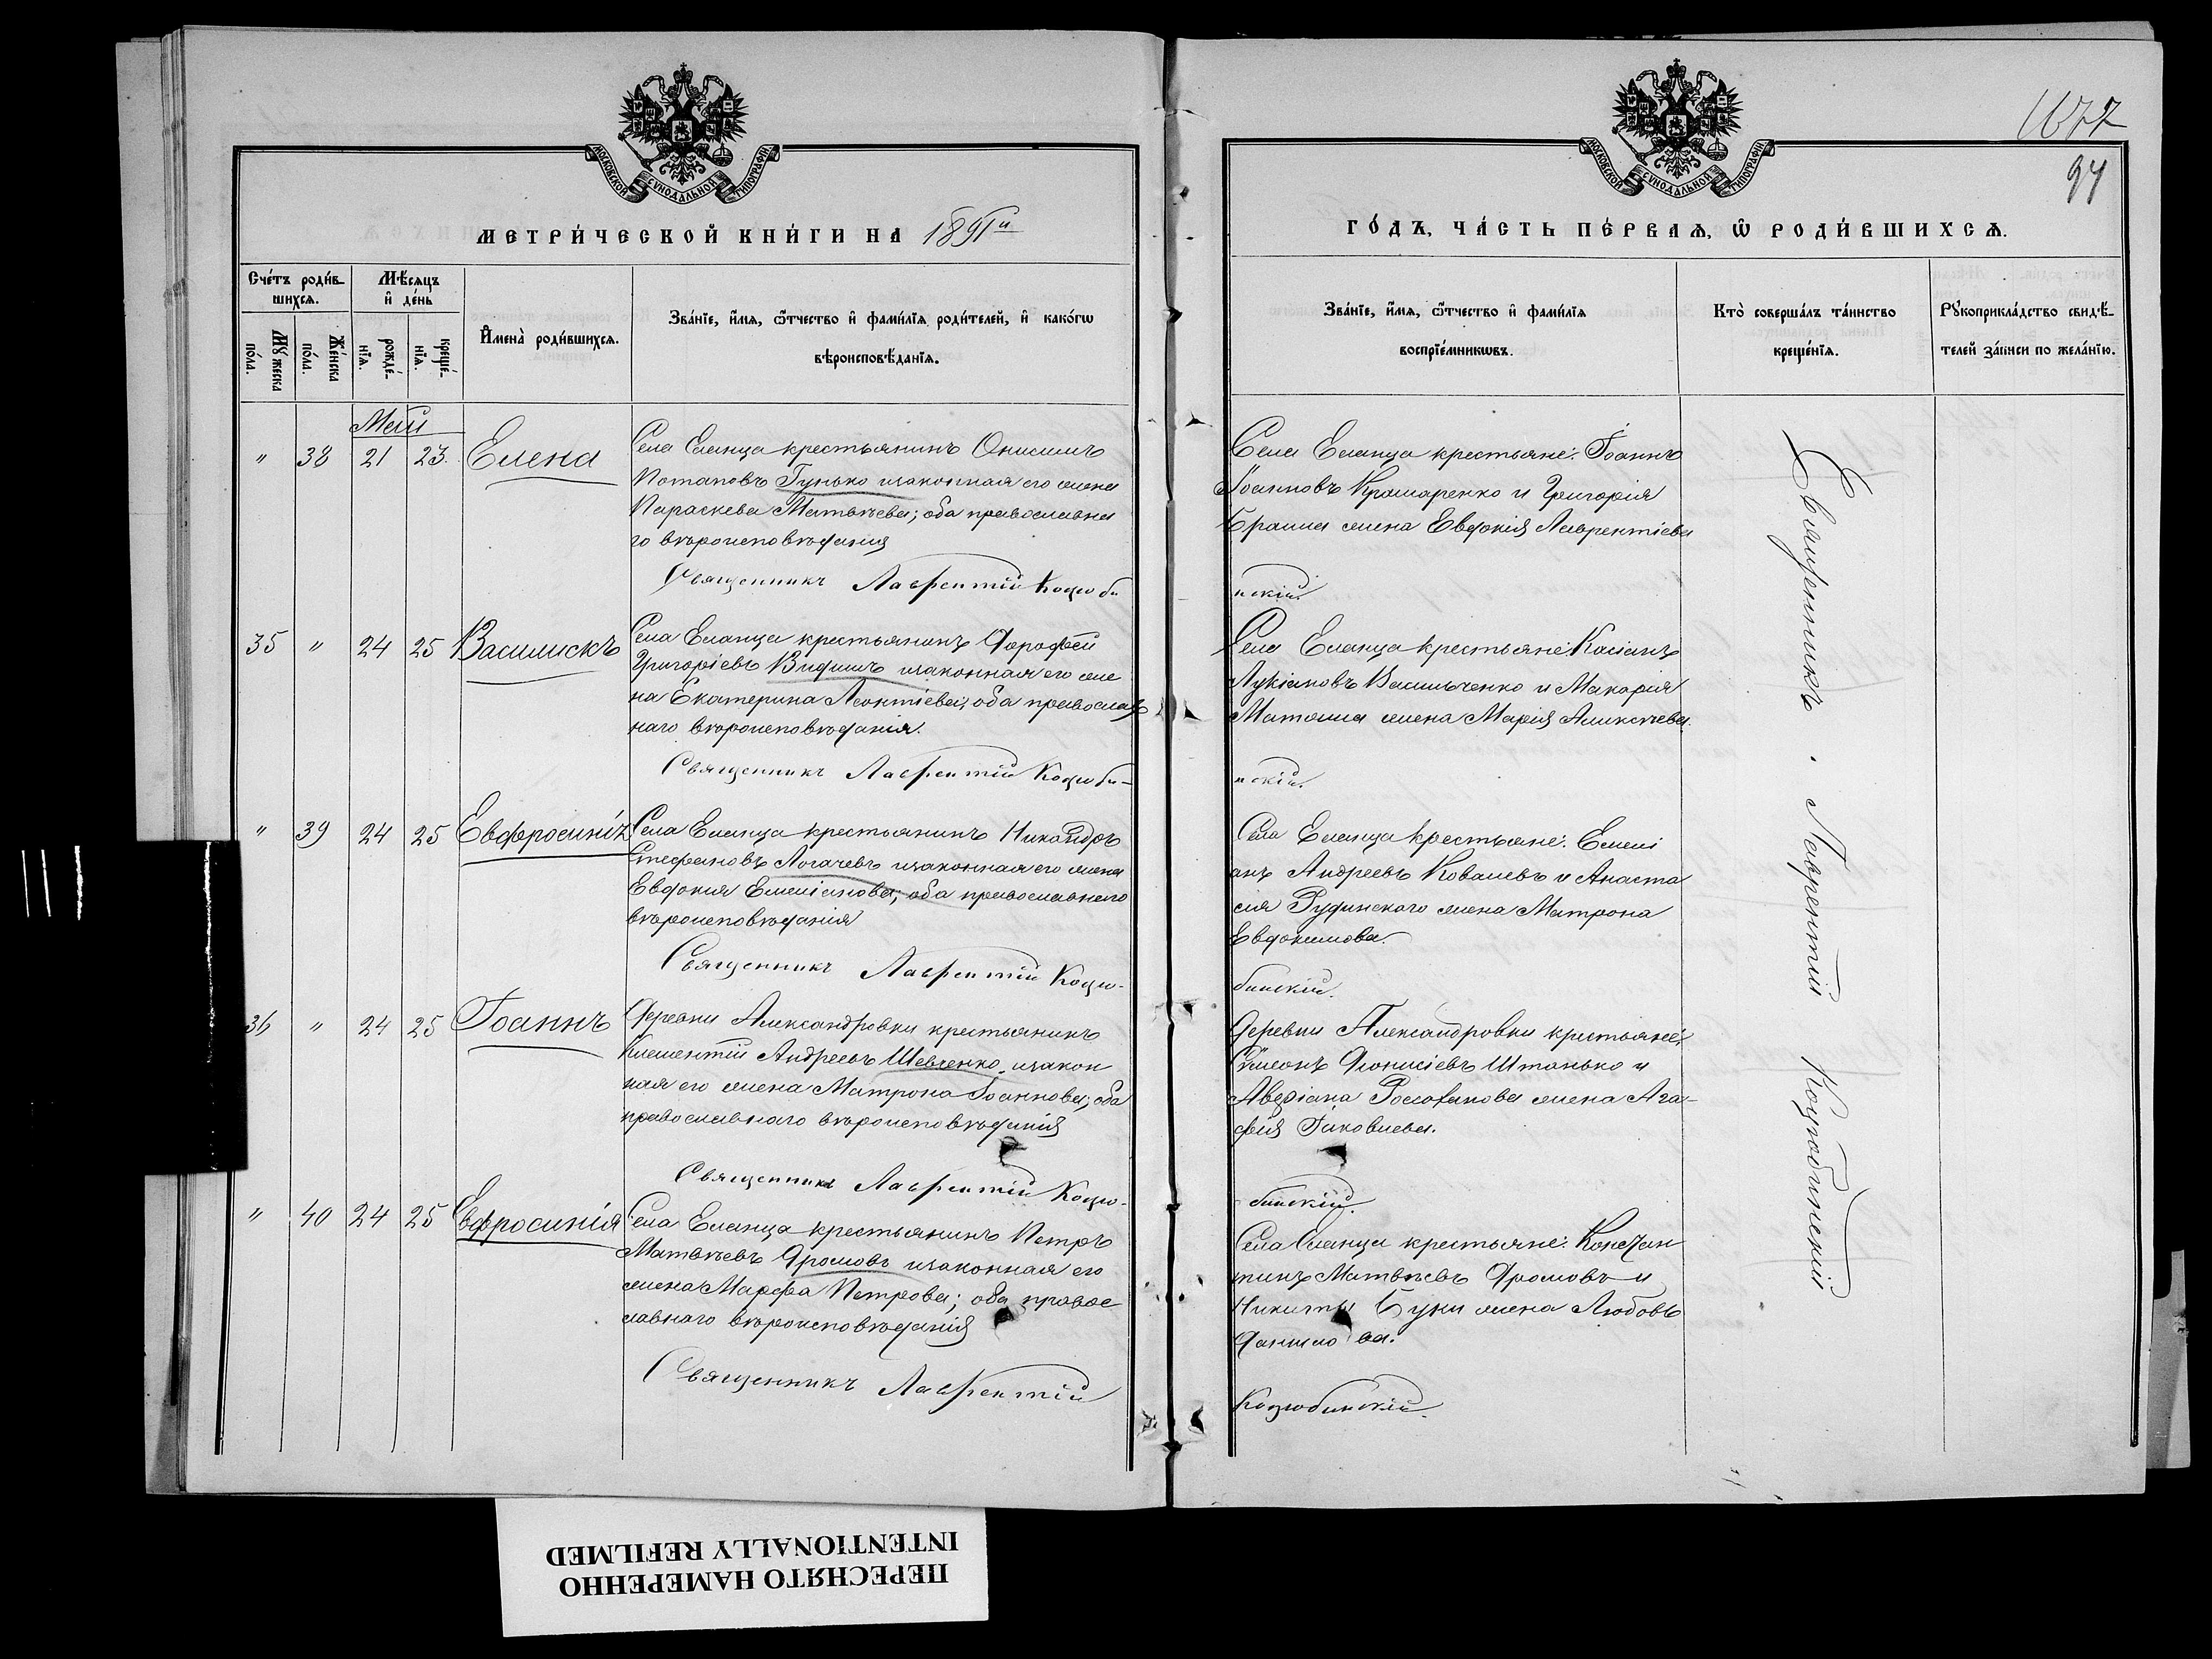 МОСКОВСКОЙ СѴНОДАЛЬНОЙ ТИПОГРАФІИ
МЕТРИ́ЧЕСКОЙ КНИ́ГИ НА 1891й
Сче́тъ роди́в-
шихсѧ.
Мѣ́сѧцъ
и҆ де́нь
Мꙋ́жеска по́ла.
Же́нска по́ла.
рожде́-
нїѧ.
креще́-
нїѧ.
И҆мена̀ роди́вшихсѧ.
Зва́нїе, и҆́мѧ, ѻ҆́тчество и҆ фами́лїѧ роди́телей, и҆ како́гѡ
вѣроисповѣ́данїѧ.
Май
" 38 21 23. Елена
Села Еланца крестьянинъ Онисимъ
Потаповъ Гунько изаконная его жена
Параскева Матвѣева; оба православна
го вѣроисповѣданія
Священникъ Лаврентій Коцюби
35 " 24 25 Василискъ
Села Еланца крестьянинъ Дорофей
Григоріевъ Видишъ изаконная его же
на Екатерина Леонтіева; оба православ
наго вѣроисповѣданія.
Священникъ Лаврентій Коцюби-
" 39 24 25 Евфросинія
Села Еланца крестьянинъ Никандръ
Стефановъ Логачевъ изаконная его жена
Евдокия Емеліанова; оба православнаго
вѣроисповѣданія
Священникъ Лаврентій Коцю-
36 " 24 25 Іоаннъ
Деревни Александровки крестьянинъ
Климентій Андреевъ Шевченко изакон
ная его жена Матрона Іоаннова; оба
православнаго вѣроисповѣданія
Священникъ Лаврентій Коцю-
" 40 24 25 Евфросинія
Села Еланца крестьянинъ Петръ
Матвѣевъ Громовъ изаконная его
жена Марфа Петрова; оба правос
лавнаго вѣроисповѣданія
Священникъ Лаврентій
1677
94
МОСКОВСКОЙ СѴНОДАЛЬНОЙ ТИПОГРАФІИ
ГО́ДЪ, ЧА́СТЬ ПЕ́РВАѦ, Ѡ҆ РОДИ́ВШИХСѦ.
Зва́нїе, и҆́мѧ, ѻ҆́тчество и҆ фами́лїѧ
воспрїе́мникѡвъ.
Кто̀ соверша́лъ та́инство
креще́нїѧ.
Рꙋкоприкла́дство свидѣ́-
телей за́писи по жела́нїю.
Села Еланца крестьяне: Іоаннъ
Іоанновъ Крамаренко и Григорія
жена Евдокія Лаврентіева
нскій.
Села Еланца крестьяне: Касіанъ
Лукіановъ Васильченко и Макарія
жена Марія Алексѣева.
нскій.
Села Еланца крестьяне: Емелі
анъ Андреевъ Ковалевъ и Анаста
сія Рудинского жена Матрона
Евдокимова.
бинскій.
Деревни Александровки крестьяне:
Сѵмеонъ Діонисіевъ Штанько и
жена Ага-
фія Іаковлева.
бинскій.
Села Еланца крестьяне: Констан
тинъ Матвѣевъ Громовъ и
Никиты Буки жена Любовь
Данилова.
Коцюбинскій.
Священникъ Лаврентій Коцюбинскій
ПЕРЕСНЯТО НАМЕРЕННО
INTENTIONALLY REFILMED